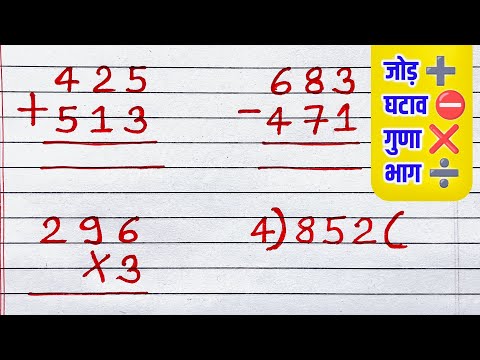 425
+513
683
-471
जोड़ ➕
घटाव ⛔
गुणा ❌
भाग ➗
296
×3
4)852(